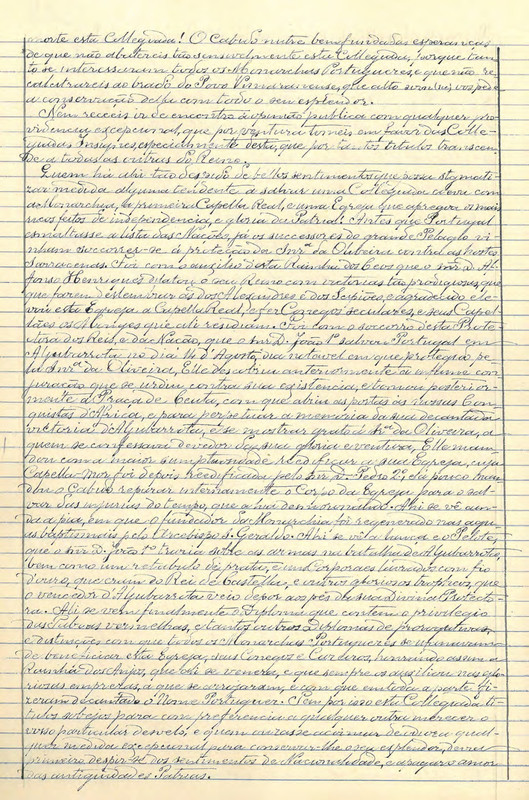 morte esta Collegiada! O Cabido nutre bem fundadas esperanças
de que não abatereis tão sensivelmente esta Collegiada, porque tan-
to se interessaram todos os Monarchas Portuguezes, e que não re-
calcitrareis ao brado do Povo Vimaranense, que alto e vos pede
a conservação della com todo o seu esplendor.
Nem receeis ir de encontro á opinião publica com qualquer pro-
videncia excepcional, que por ventura tomeis em favor das Colle-
giadas Insignes, especialmente desta, que por tantos titulos transcen-
de a todas as outras do Reino.
Quem ha ahi tão despido de bellos sentimentos que possa stygmati-
zar medida alguma tendente a salvar uma Collegiada coeva com
a Monarchia, a primeira Capella Real, e uma Egreja que apregoa os mais
ricos feitos da independencia, e gloria da Patria! Antes que Portugal
esmaltasse a lista das Nações, já os successores do grande Pelagio vi-
nham soccorrer-se á protecção da Snrª da Oliveira contra as hostes
Sarracenas. Foi com o auxilio desta Rainha dos Ceos que o snr D. Af-
fonso Henriques dilatou o seu Reino com victorias tão prodigiosas, que
que fazem deslembrar as dos Alexandres e dos Scipiões, e agradecido ele-
vou esta Egreja a Capella Real, defer Conegos seculares, e seus Capel-
lães os Monges que ali residiam. Foi com o soccorro desta Prote-
tora dos Reis, e da Nação, que o snr D. João 1º salvou Portugal em
Aljubarrota no dia 14 d'Agosto, dia notavel em que protegido pe-
la Snrª da Oliveira, Elle descobriu anteriormente a infame con-
juração que se urdiu contra sua existencia, e tomou posterior-
mente a Praça de Ceuta, com que abriu as portas ás nossas Con-
quistas d'Africa, e para perpetuar a memoria da sua decantada
victoria d'Aljubarrota, e se mostrar grato á Snrª da Oliveira, a
quem se confessava devedor da sua gloria e ventura, Elle man-
dou com a maior sumptuosidade reedificar a sua Egreja, cuja
Capella-Mor foi depois reedificada pelo snr D. Pedro 2º, e ha pouco man-
dou o Cabido reparar internamente o Corpo da Egreja para o sal-
var das injurias do tempo, que a hia deteriorando. Ahi se vê ain-
da a pia, em que o fundador da Monarchia foi regenerado nas aguas
baptismaes pelo Arcebispo S. Geraldo. Ahi se vê a lança e o Pelote,
que o snr D. João 1º trazia sobre as armas na batalha d'Aljubarrota,
bem como um retabulo de prata, e uns corporaes lavrados com fio
d'ouro, que eram do Rei de Castella, e outros gloriosos tropheos, que
o vencedor d'Aljubarrota veio depor aos pés da sua Divina Protecto-
ra. Ahi se vem finalmente o Diploma que contem o privilegio
das Taboas vermelhas, e tantos outros Diplomas de prerogativas,
e distincções com que todos os Monarchas Portuguezes se ufanaram
de beneficiar esta Egreja, seus Conegos e Caseiros, honrando assim a
Rainha dos Anjos, que ahi se venera, e que sempre os auxiliou nas glo-
riosas emprezas, a que se arrojaram, e com que em toda a parte fi-
zeram decantado o Nome Portuguez. Tem por isso esta Collegiada ti-
tulos sobejos para com preferencia a qualquer outra merecer o
vosso particular desvelo, e quem ousasse acoimar de odiosa qual-
quer medida excepcional para conservar-lhe o seu esplendor, devera
primeiro despir-se dos sentimentos de Nacionalidade, e apagar o amor
das antiguidades Patrias.